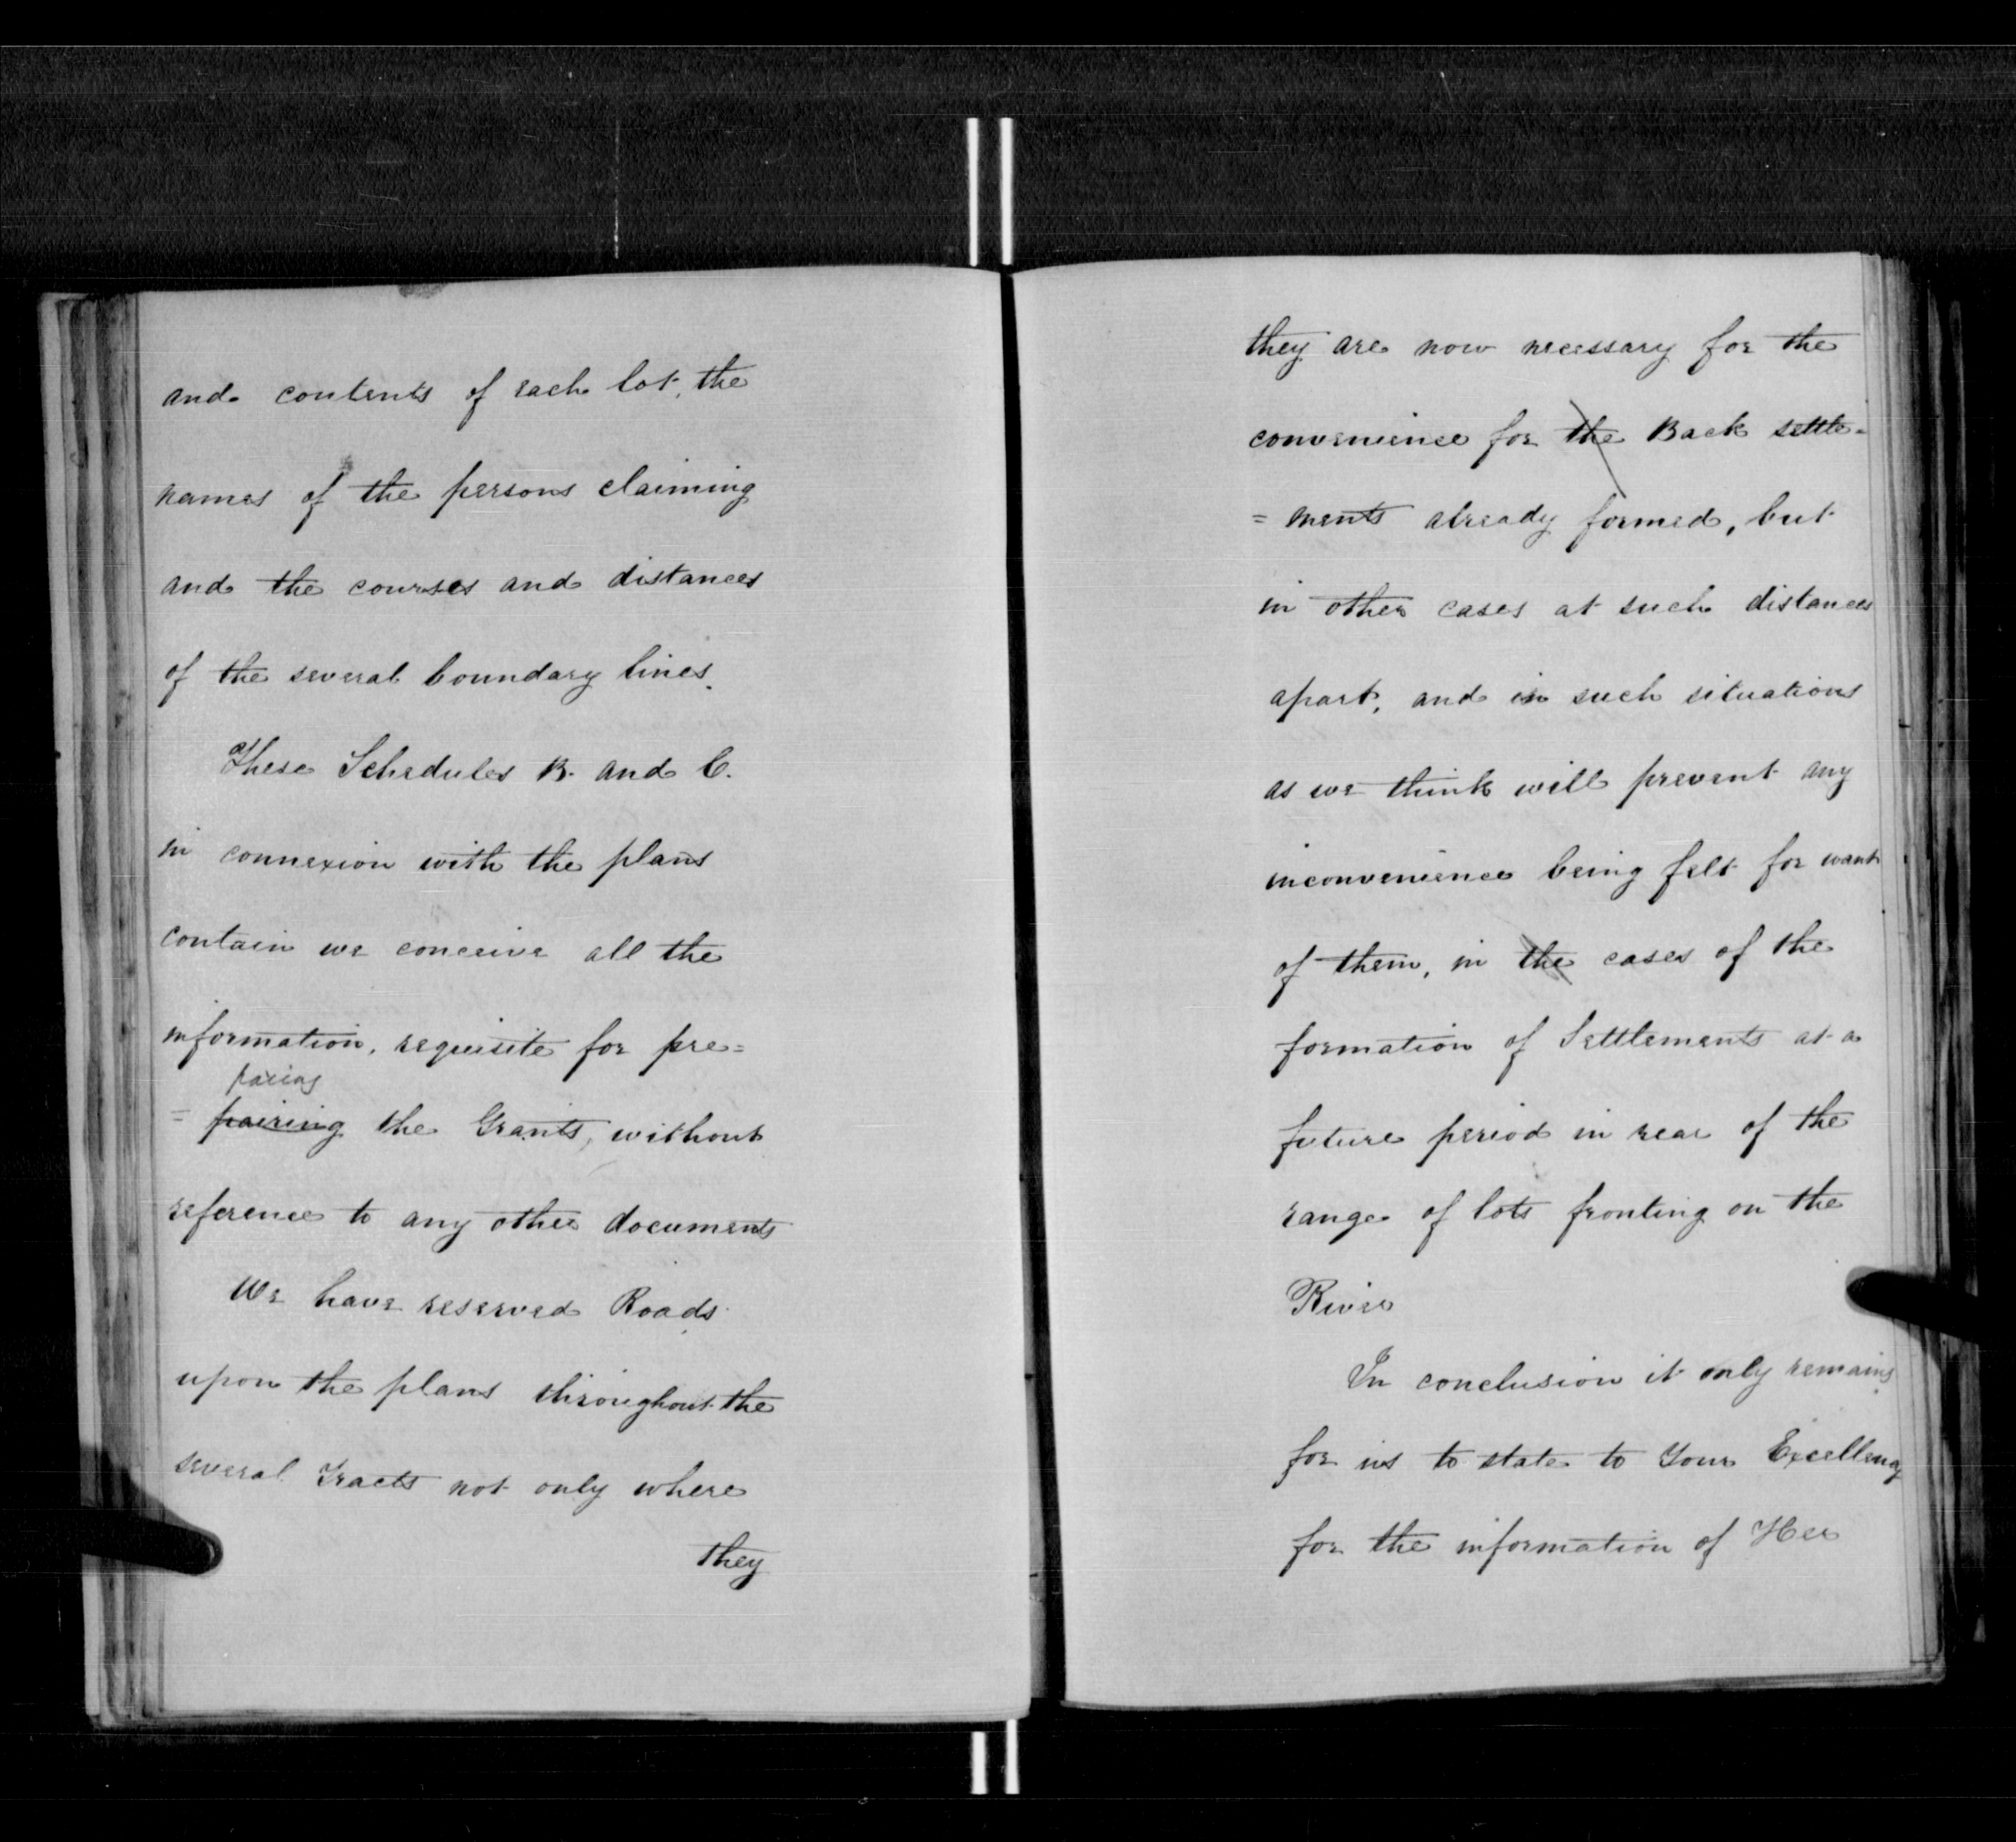 and contents of each lot, the
names of the persons claiming
and the courses and distances
of the several boundary lines.
These Schedules B. and C.
in connexion with the plans
contain we conceive all the
information, requisite for pre=
paring
= pairing the Grants, without
reference to any other documents
We have reserved Roads
upon the plans throughout the
several Tracts not only where
they
they are now necessary for the
convenience for the Back settle=
= ments already formed, but
in other cases at such distances
apart, and in such situations
as we think will prevent any
inconvenience being felt for want
of them, in the cases of the
formation of Settlements at a
future period in rear of the
range of lots fronting on the
River
In conclusion it only remains
for us to state to Your Excellency
for the information of Her